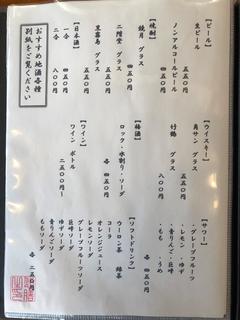 【ビール】
生ビール 五五〇
ノンアルコールビール 四五〇
【焼酎】
鏡月 グラス 四五〇
二階堂 グラス 五五〇
黒霧島 グラス 五五〇
【日本酒】
一合 四五〇
二合 八〇〇
おすすめ地酒各種
別紙をご覧ください
【ウイスキー】
角サン グラス 五五〇
竹鶴 グラス 八〇〇
【梅酒】
ロック・水割り・ソーダ 各 四五〇
【ワイン】
ワイン ボトル 二五〇〇〜
【サワー】
・グレープフルーツ
・レモン・ゆず
・青りんご・巨峰
・もも・うめ 各 四五〇
【ソフトドリンク】
ウーロン茶 緑茶
コーラ
オレンジジュース
レモンソーダ
グレープフルーツソーダ
巨峰ソーダ
ゆずソーダ
青りんごソーダ
ももソーダ 各 二五〇